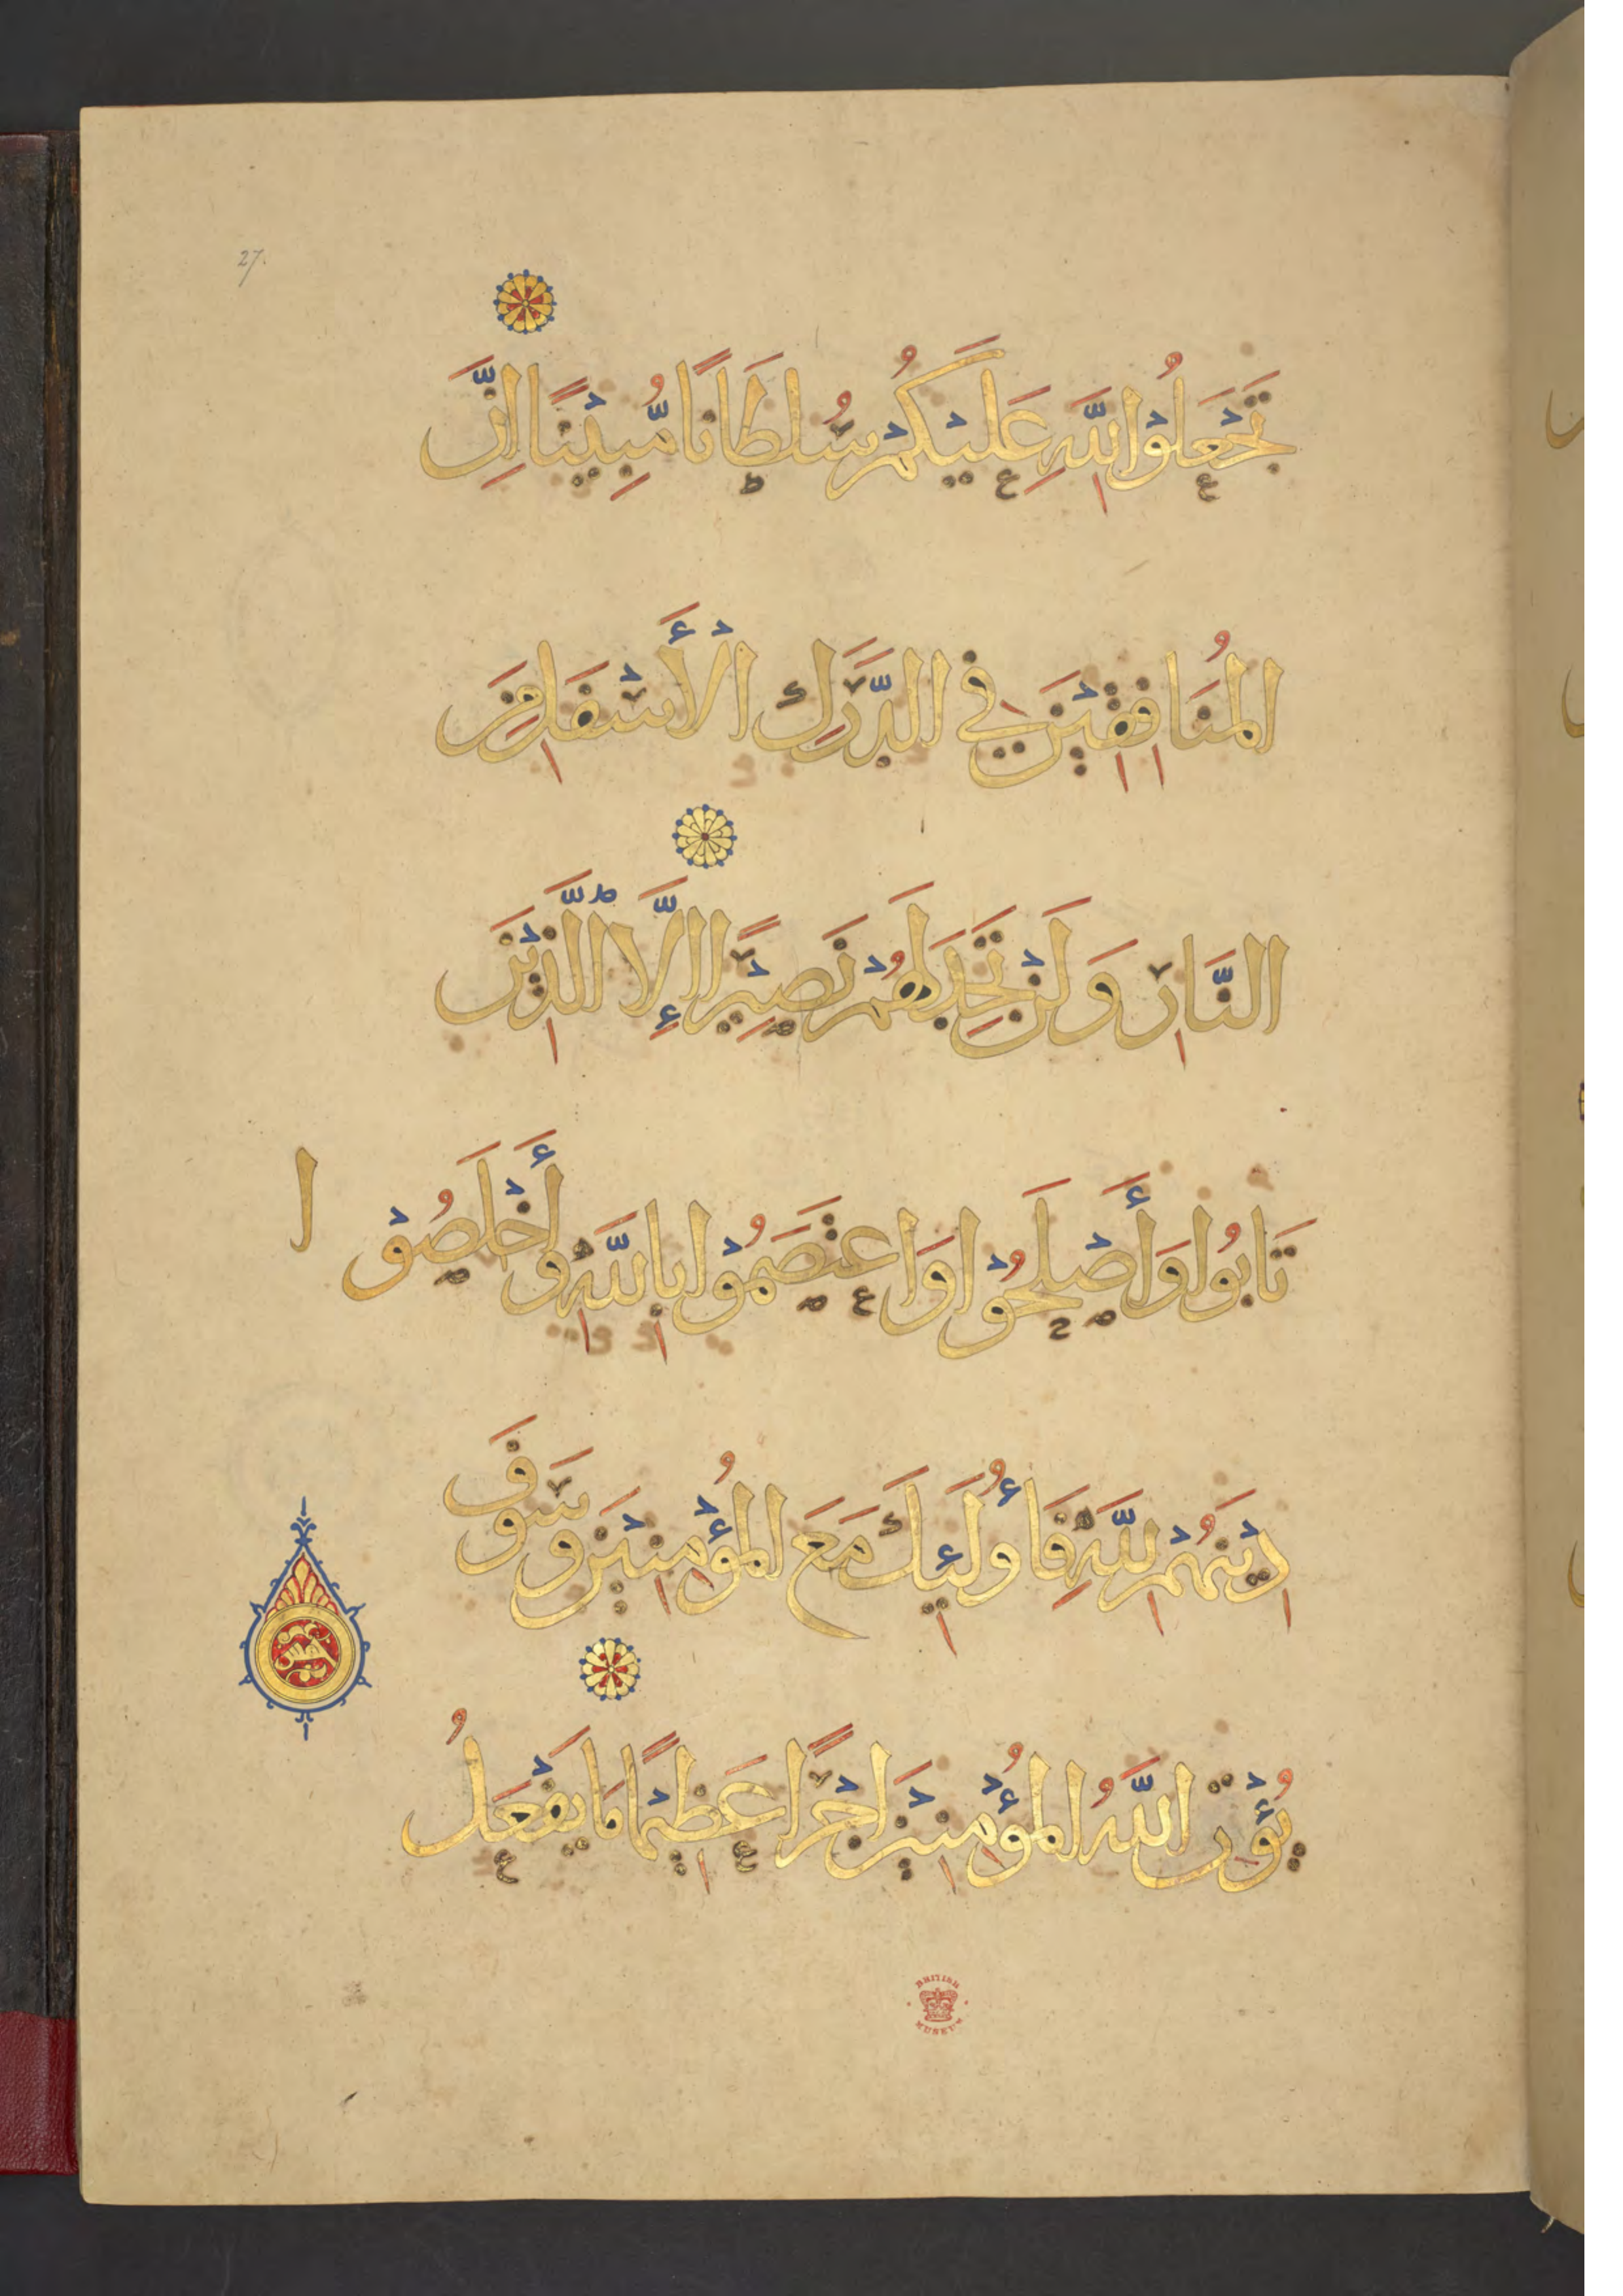 27.
تَجْعَلُوْا لِلَّهِ عَلَيْكُمْ سُلْطَانًا مُّبِيْنًا اِنَّ
الْمُنَافِقِيْنَ فِي الدَّرَكِ الْأَسْفَلِ مِنَ
النَّارِ وَلَنْ تَجِدَ لَهُمْ نَصِيْرًا إِلَّا الَّذِيْنَ
تَابُوا وَأَصْلَحُوْا وَاعْتَصَمُوْا بِاللَّهِ وَأَخْلَصُوْا
دِيْنَهُمْ لِلَّهِ فَأُولَئِكَ مَعَ الْمُؤْمِنِيْنَ وَسَوْفَ
يُؤْتِ اللَّهُ الْمُؤْمِنِيْنَ اَجْرًا عَظِيْمًا مَا يَفْعَلُ
BRITISH
MUSEUM